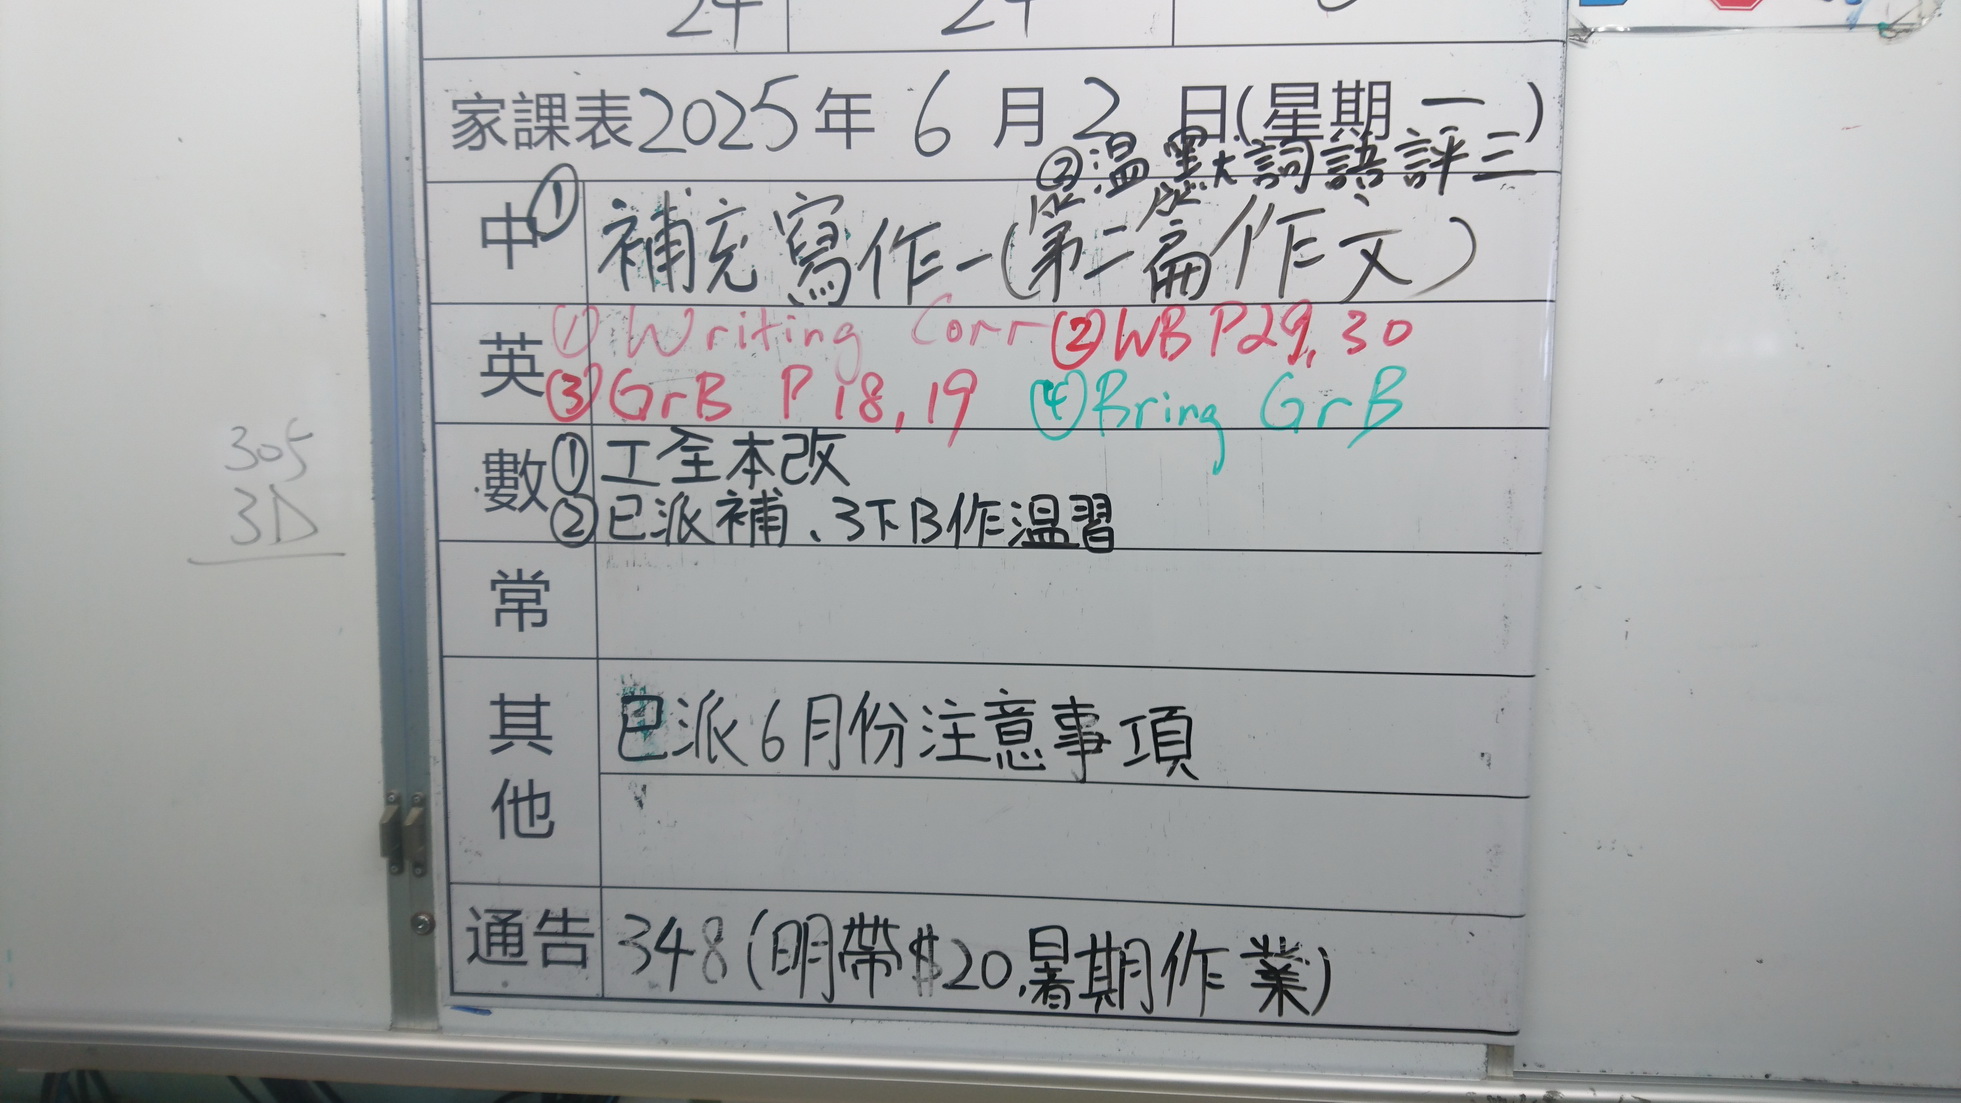 24 24
家課表2025年 6 月 2 日(星期 一 )
②溫默詞語評三
中 ① 補充寫作一(第二篇作文)
英 ① Writing Corr ② WB P29, 30
③ GrB P 18, 19 ④ Bring GrB
數 ① 工全本改
② 已派補、3下B作溫習
305
3D
常
其他 已派6月份注意事項
通告 348 (明帶$20,暑期作業)